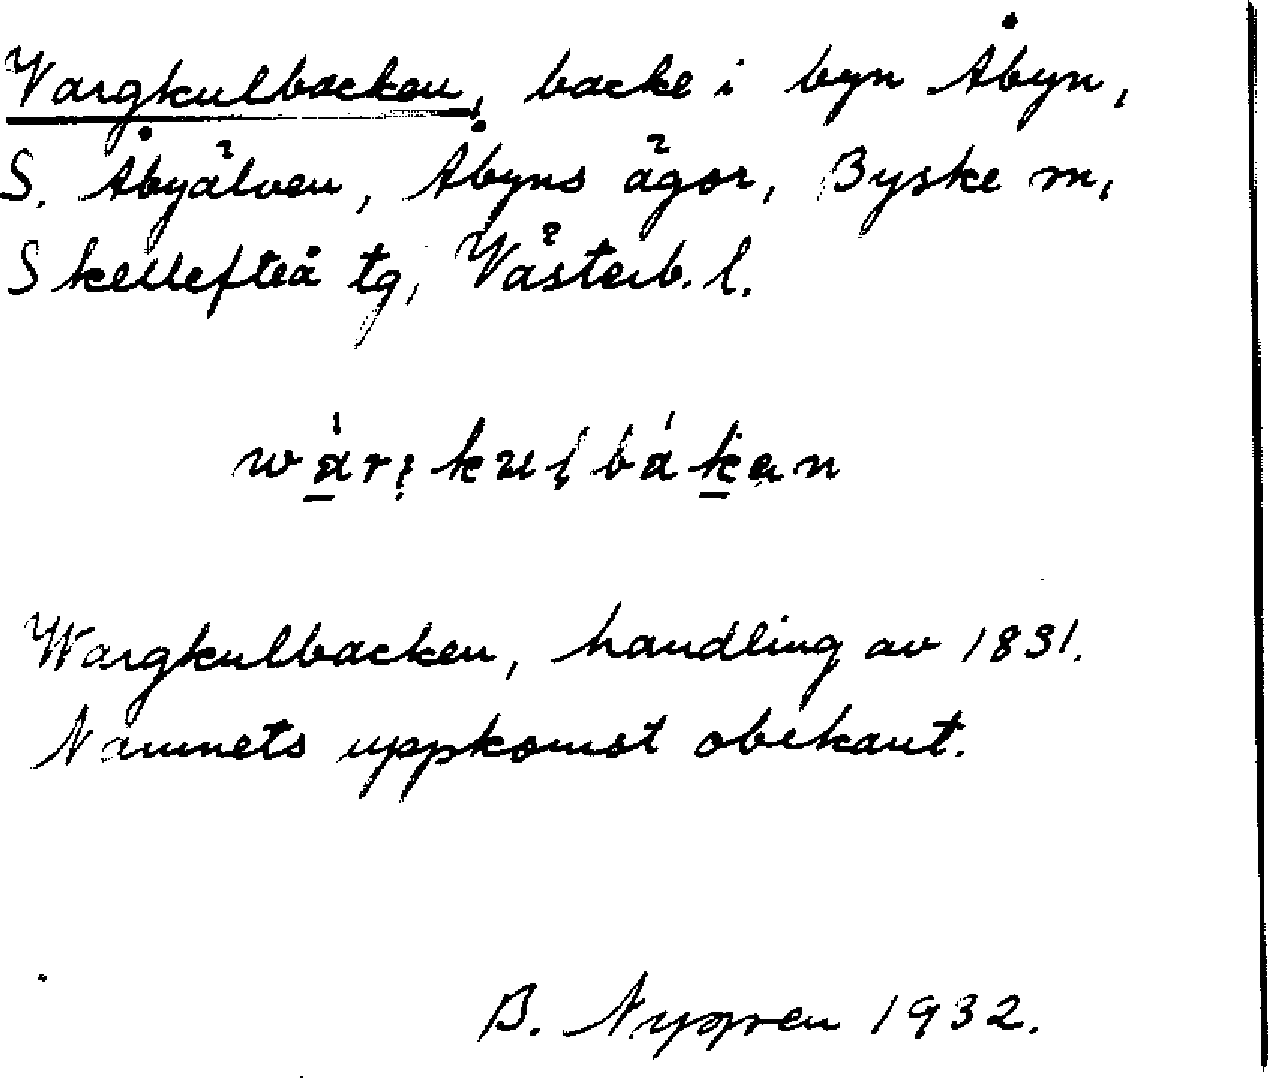 Vargkulbacken, backe i byn Åbyn,
S. Åbyälven, Åbyns ägor, Byske sn,
Skellefteå tg, Västerb. l.
Wargkulbacken, handling av 1831.
Namnets uppkomst obekant.
B. Nygren 1932.